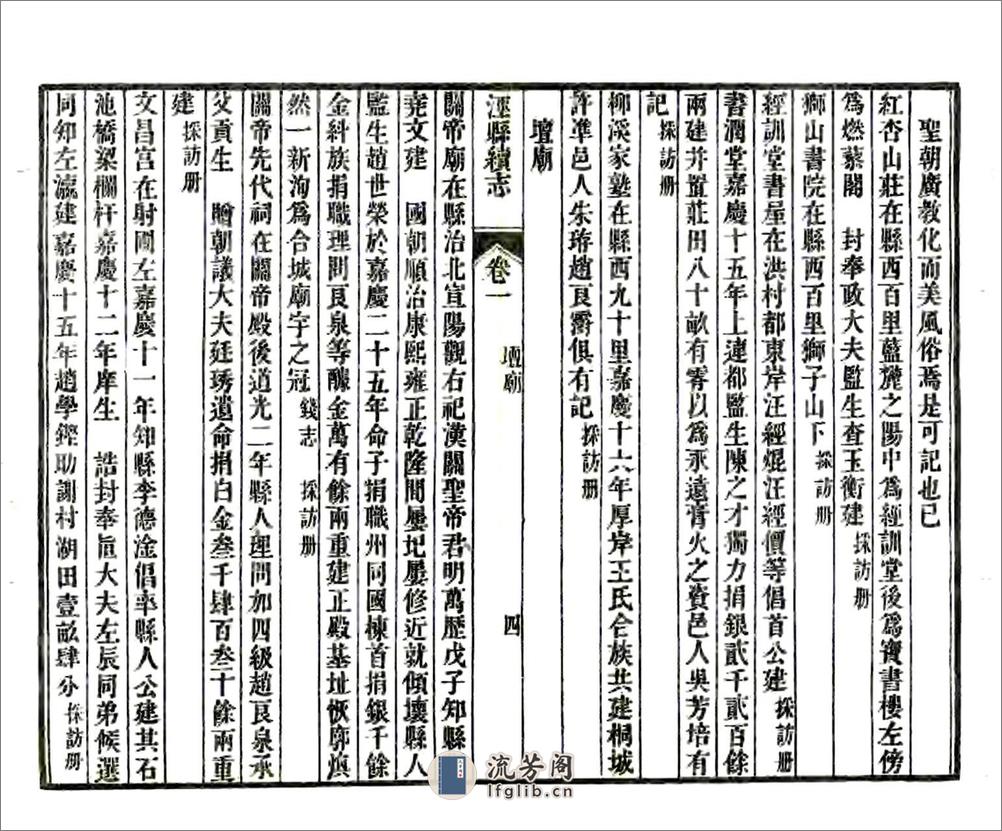 聖朝廣教化而美風俗焉是可記也已
紅杏山莊在縣西百里藍麓之陽中為經訓堂後為寶書樓左傍
為燃藜閣　封奉政大夫監生查玉衡建採訪册
獅山書院在縣西百里獅子山下採訪册
經訓堂書屋在洪村都東岸汪經焜汪經價等倡首公建採訪册
書潤堂嘉慶十五年上連都監生陳之才獨力捐銀貳千貳百餘
兩建并置莊田八十畝有零以為永遠膏火之資邑人吳芳培有
記採訪册
柳溪家塾在縣西九十里嘉慶十六年厚岸王氏仝族共建桐城
許準邑人朱珔趙良霨俱有記採訪册
壇廟
涇縣續志　卷一　壇廟　四
關帝廟在縣治北宣陽觀右祀漢關聖帝君明萬歷戊子知縣
堯文建　國朝順治康熙雍正乾隆間屢圮屢修近就傾壞縣人
監生趙世榮於嘉慶二十五年命子捐職州同國棟首捐銀千餘
金糾族捐職理問良泉等釀金萬有餘兩重建正殿基址恢廓煥
然一新洵為合城廟宇之冠錢志　採訪册
關帝先代祠在關帝殿後道光二年縣人理問加四級趙良泉承
父貢生　贈朝議大夫廷琇遺命捐白金叁千肆百叁十餘兩重
建採訪册
文昌宫在射圃左嘉慶十一年知縣李德淦倡率縣人公建其石
池橋梁欄杆嘉慶十二年庠生　誥封奉直大夫左辰同弟候選
同知左瀛建嘉慶十五年趙學鏗助謝村湖田壹畝肆分採訪册
流芳阁
lfglib.cn